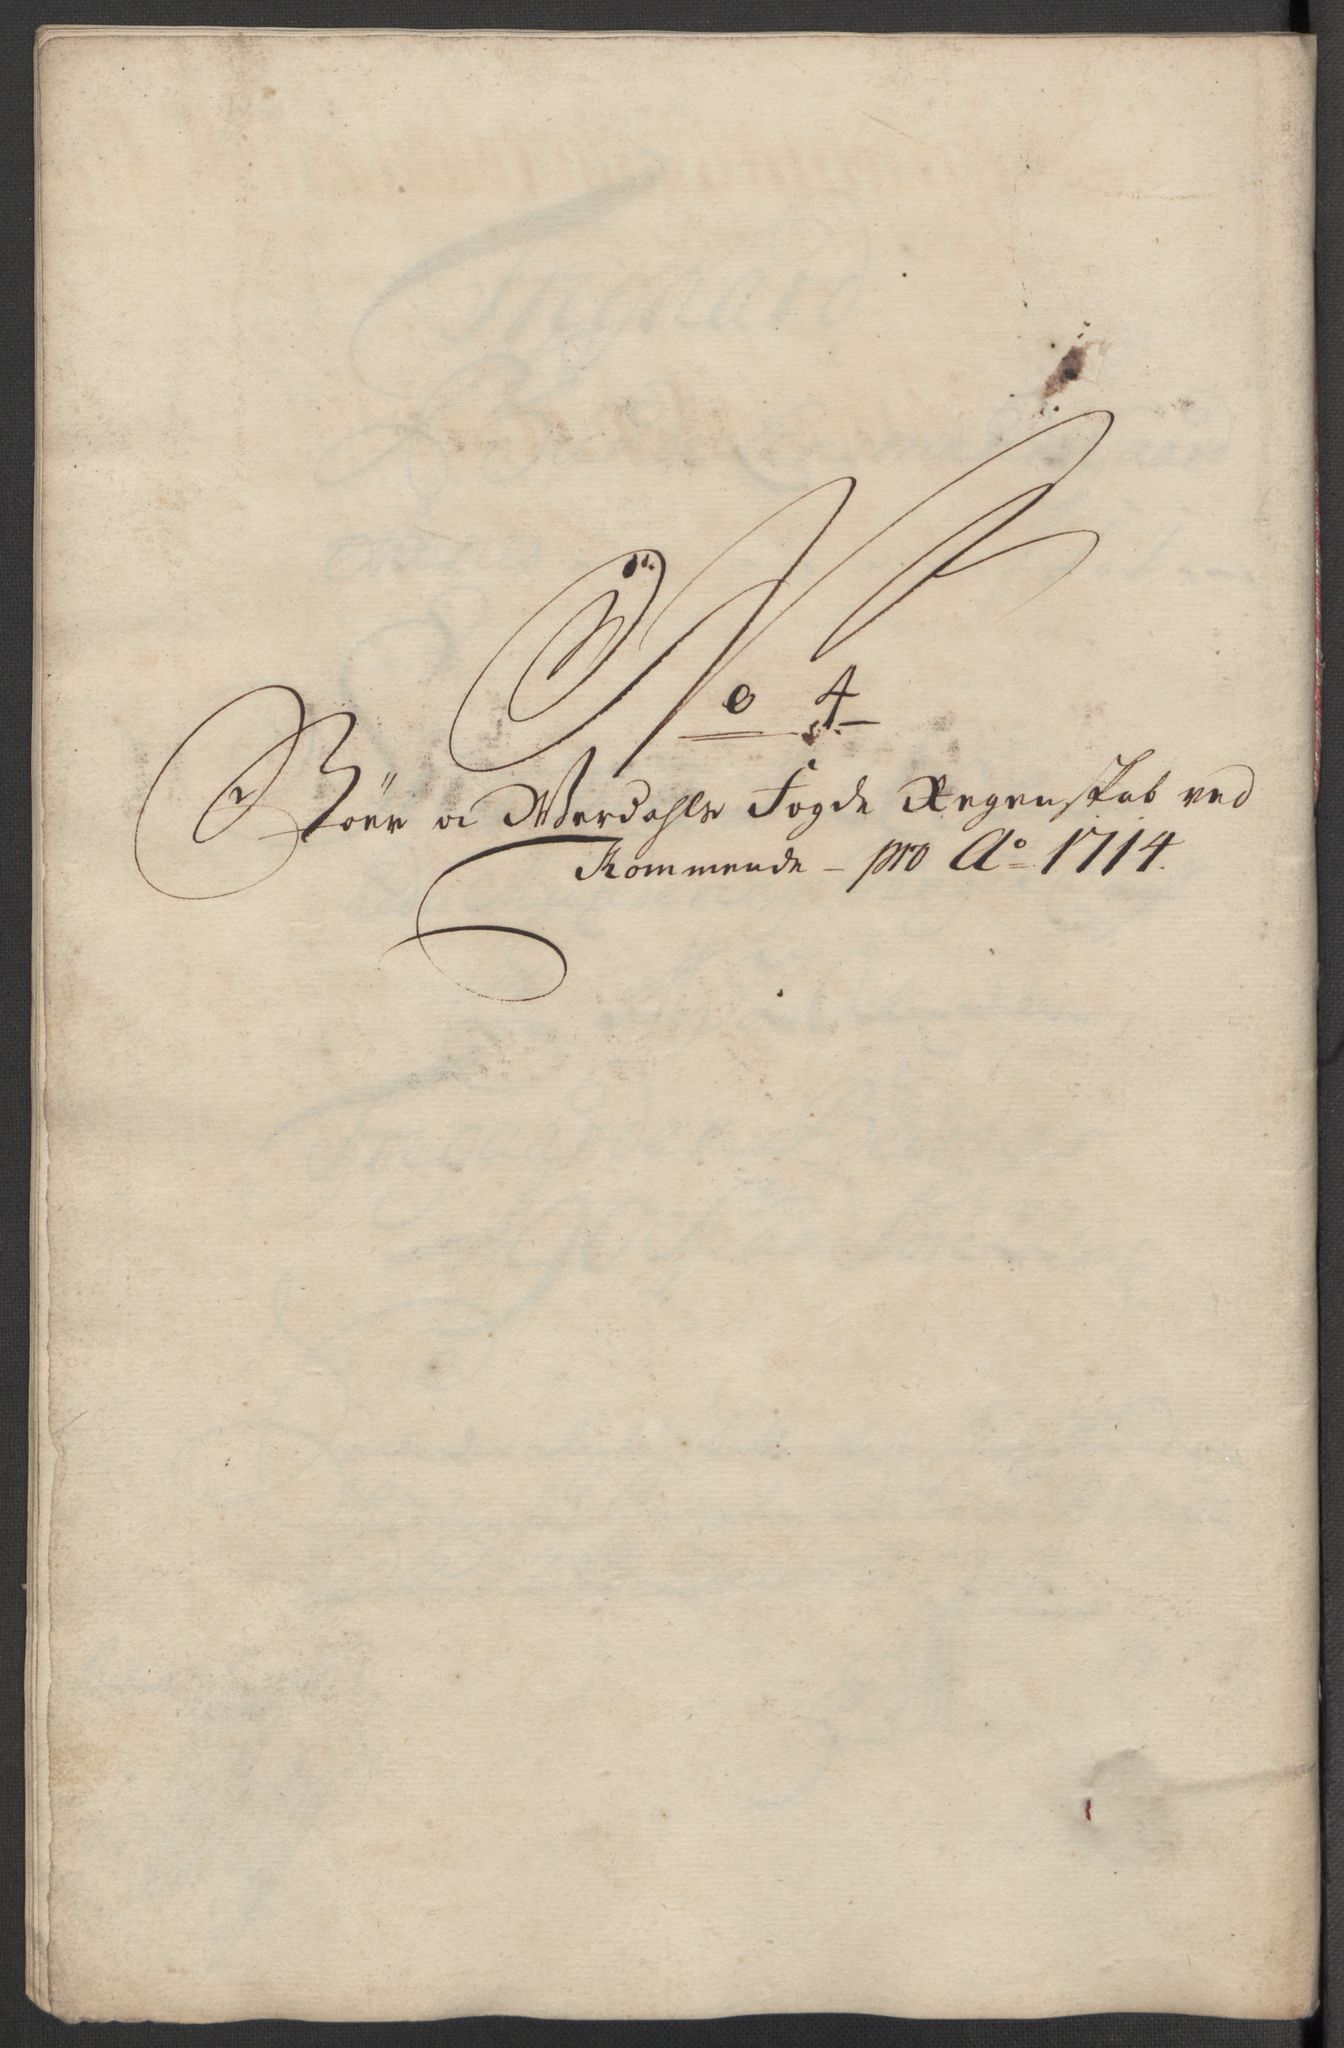 No 4
Stöer og Werdahls Fogde Regenskab ved
Kommende - pro Ao 1714.